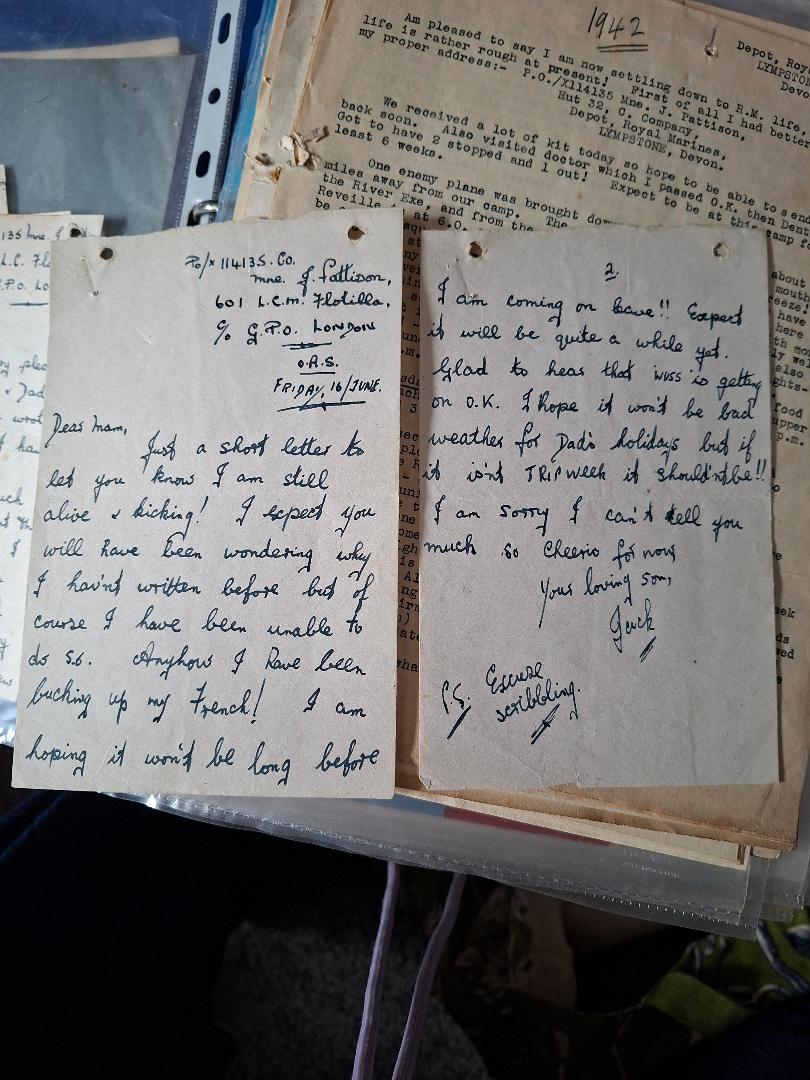 1942
Depot, Roy
LYMPSTONE
Devo
Am pleased to say I am now settling down to R.M. life,
life is rather rough at present! First of all I had better
my proper address:- P.O./X114135 Mne. J. Pattison,
Hut 32, C. Company,
Depot, Royal Marines,
LYMPSTONE, Devon.
We received a lot of kit today so hope to be able to send
back soon. Also visited doctor which I passed O.K. then Dent
Got to have 2 stopped and 1 out! Expect to be at this camp fo
least 6 weeks.
One enemy plane was brought down
miles away from our camp. The
the River Exe, and from the
Reveille at 6.0.
Po/x 114135. Co.
mne. J. Pattison,
601 L.C.M. Flotilla,
c/o G.P.O. LONDON
O.A.S.
FRIDAY, 16/JUNE.
Dear Mam,
Just a short letter to
let you know I am still
alive & kicking! I expect you
will have been wondering why
I hav'nt written before but of
course I have been unable to
do so. Anyhow I have been
bucking up my French! I am
hoping it won't be long before
2.
I am coming on leave!! Expect
it will be quite a while yet.
Glad to hear that is getting
on O.K. I hope it won't be bad
weather for Dad's holidays but if
it isn't TRIP WEEK it shouldn't be!!
I am sorry I can't tell you
much so Cheerio for now,
Your loving son,
Jack
P.S. Excuse
scribbling.